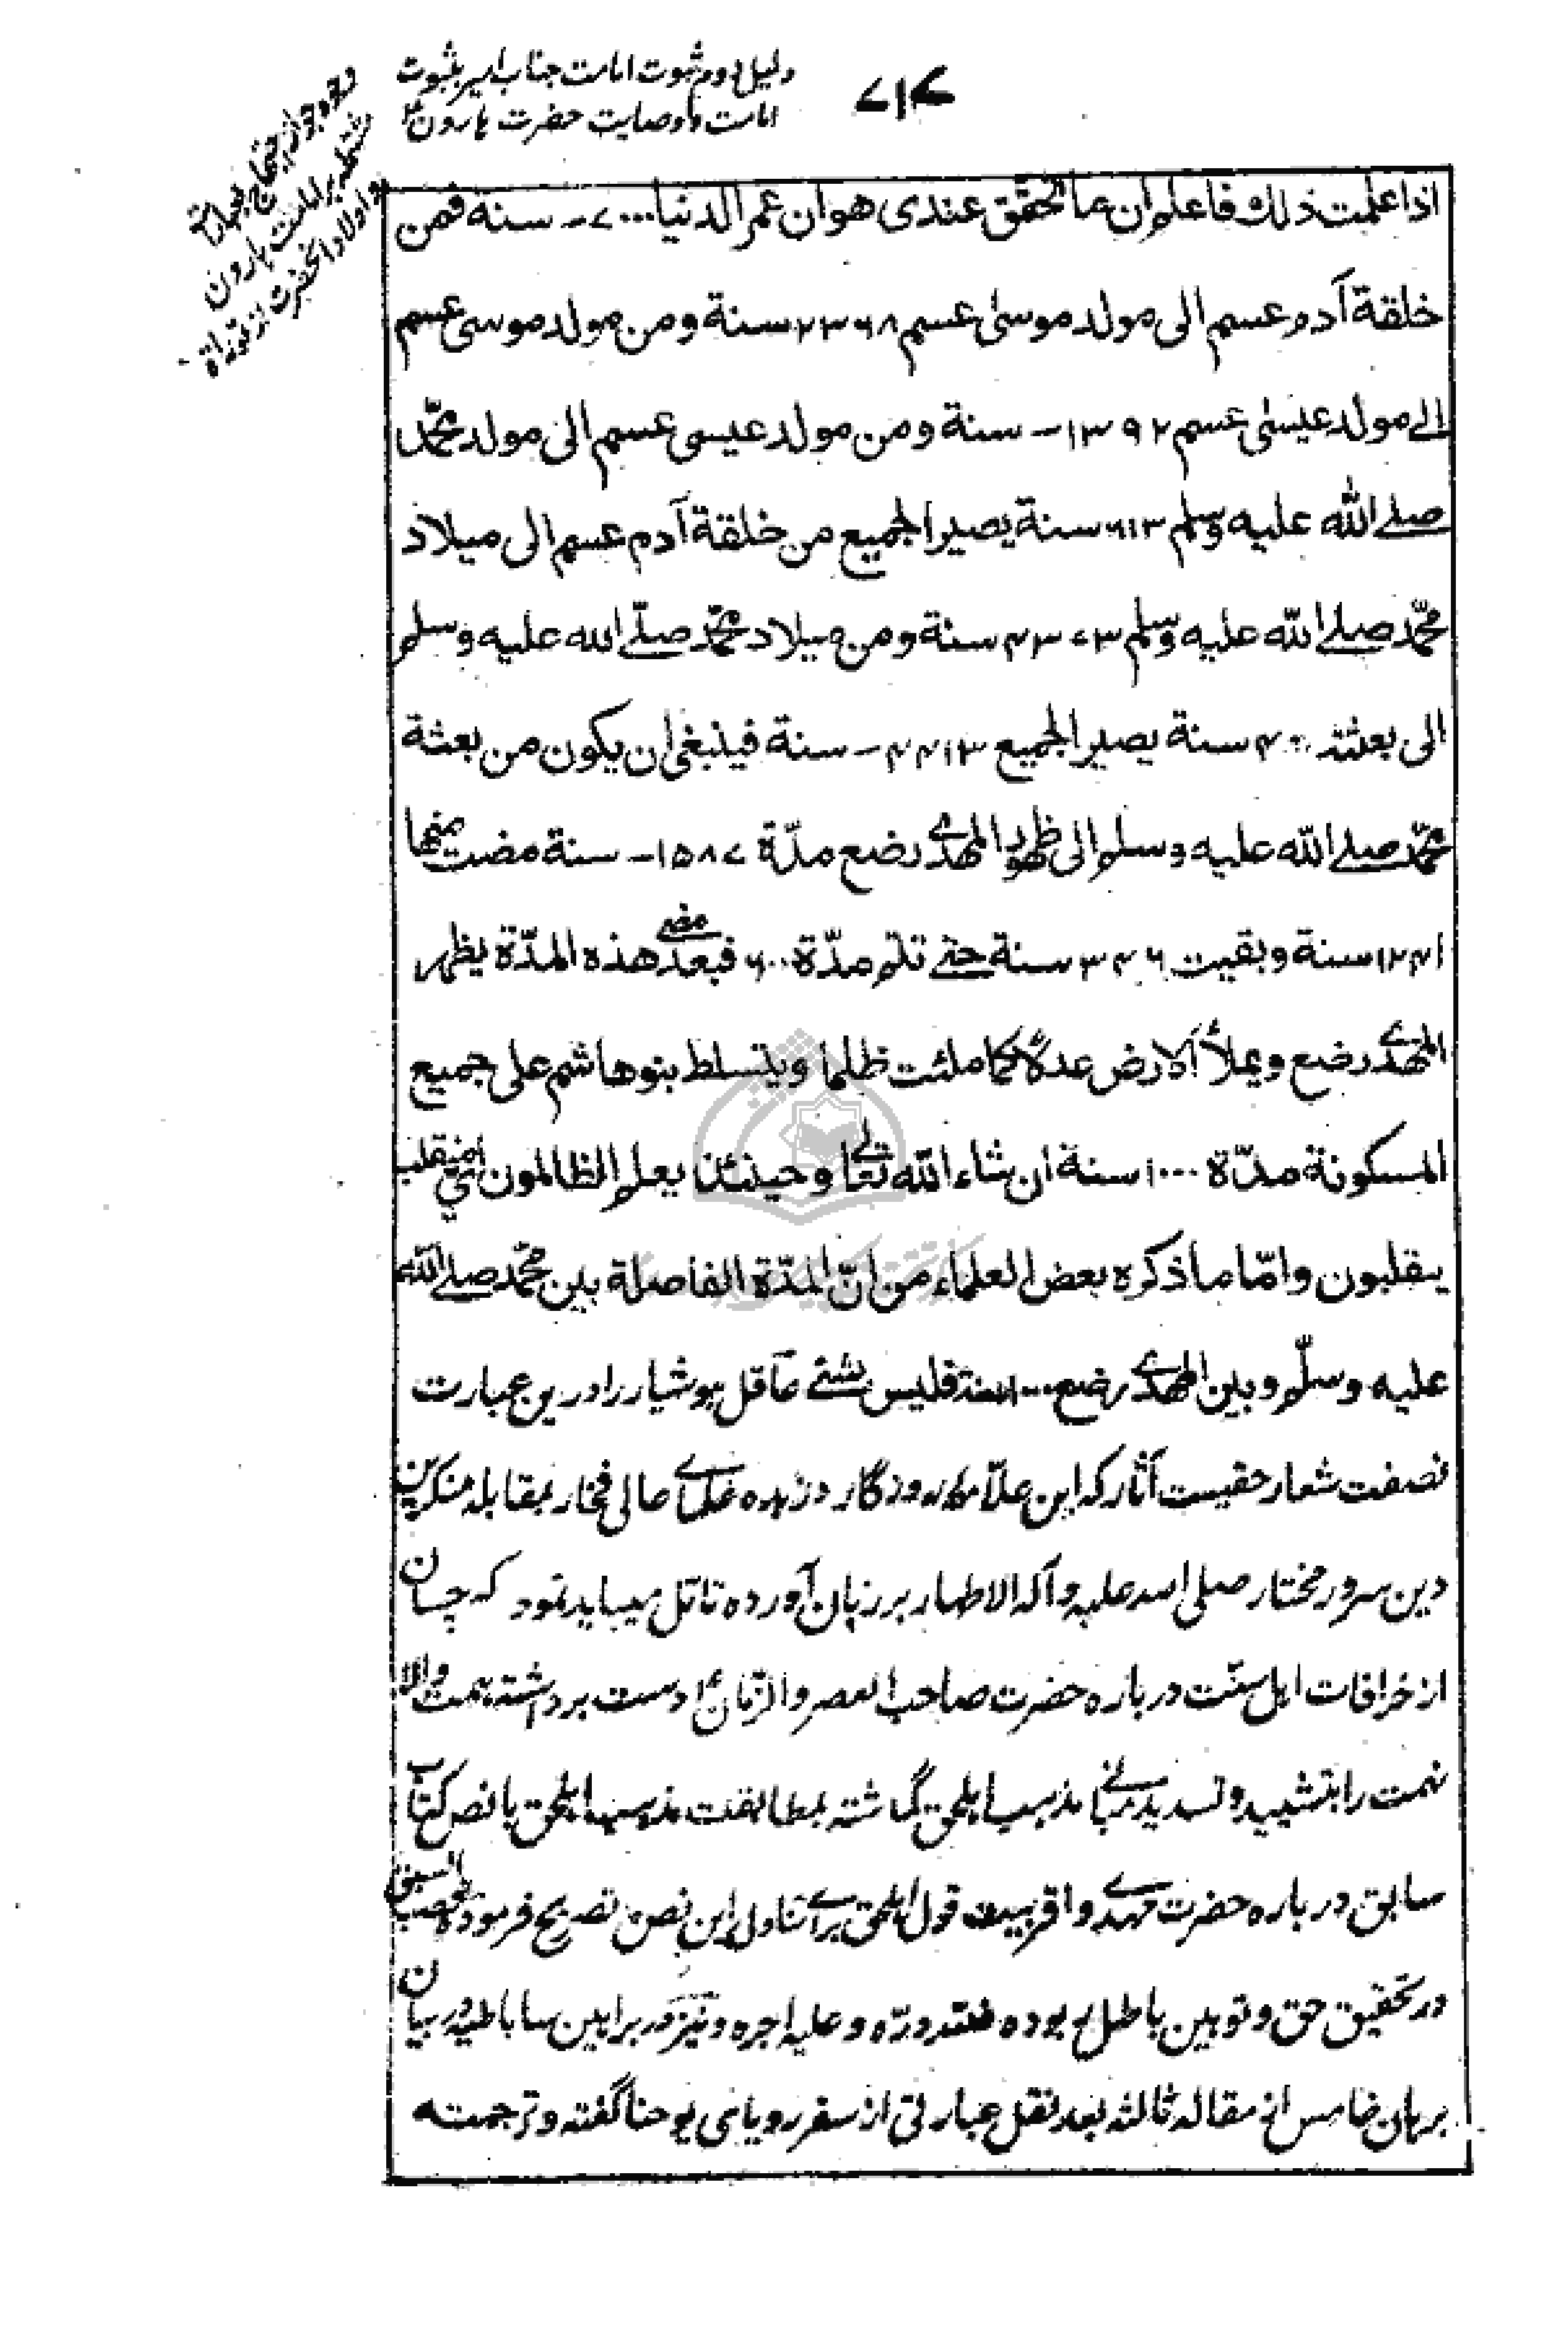 ۷۱۷
دلیل دوم ثبوت امامت جناب امیر بثبوت
امامت و وصایت حضرت هارون ع
وجوه احتجاج بعبارات
مشتمله بر امامت هارون
و اولاد آنحضرت از توراة
اذا علمت ذلك فاعلم ان ما تحقق عندى هو ان عمر الدنيا ۷۰۰۰ سنة فمن
خلقة آدم عسم الى مولد موسىٰ عسم ۲۳۶۸ سنة ومن مولد موسى عسم
الے مولد عيسىٰ عسم ۱۳۹۲ سنة ومن مولد عيسى عسم الى مولد محمّد
صلے الله عليه وسلم ۶۱۳ سنة يصير الجميع من خلقة آدم عسم الى ميلاد
محمّد صلے الله عليه وسلم ۴۳۷۳ سنة ومن ميلاد محمّد صلّے الله عليه وسلم
الى بعثته ۴۰ سنة يصير الجميع ۴۴۱۳ سنة فينبغى ان يكون من بعثة
محمّد صلے الله عليه وسلم الى ظهور المهدے رضع مدّة ۱۵۸۷ سنة مضت منها
۱۲۴۱ سنة وبقيت ۳۴۶ سنة حتے تتم مدّة ۶۰۰۰ فبعد مضے هذه المدّة يظهر
المهدے رضع ويملأ الارض عدلًا كما ملئت ظلما ويتسلط بنو هاشم على جميع
المسكونة مدّة ۱۰۰۰ سنة ان شاء الله تعالے وحينئذ يعلم الظالمون اىّ منقلب
ينقلبون وامّا ما ذكره بعض العلماء من انّ المدّة الفاصلة بين محمّد صلے الله
عليه وسلّم وبين المهدے رضع ۱۰۰۰ سنة فليس بشئے عاقل هوشيار را درين عبارت
نصفت شعار حقيت آثار كه اين علّامه روزگار و زبده علماے عالى فخار بمقابله منكرين
دين سرور مختار صلى الله عليه وآله الاطهار بر زبان آورده تامّل ميبايد نمود كه چسان
از خرافات اهل سنّت درباره حضرت صاحب العصر والزّمان ع دست برداشته همت والا
نهمت را بتشييد و تسديد مبانے مذهب اهلحق گماشته بمطابقت مذهب اهلحق با نص كتاب
سابق درباره حضرت مهدے و اقربيت قول اهلحق براے تناول اين نص تصريح فرموده قصب السبق
در تحقيق حق و توهين باطل ربوده فلله درّه وعليه اجره و نيز در براهين ساباطيه در بيان
برهان خامس از مقاله ثالثه بعد نقل عبارتى از سفر روياى يوحنا گفته وترجمته